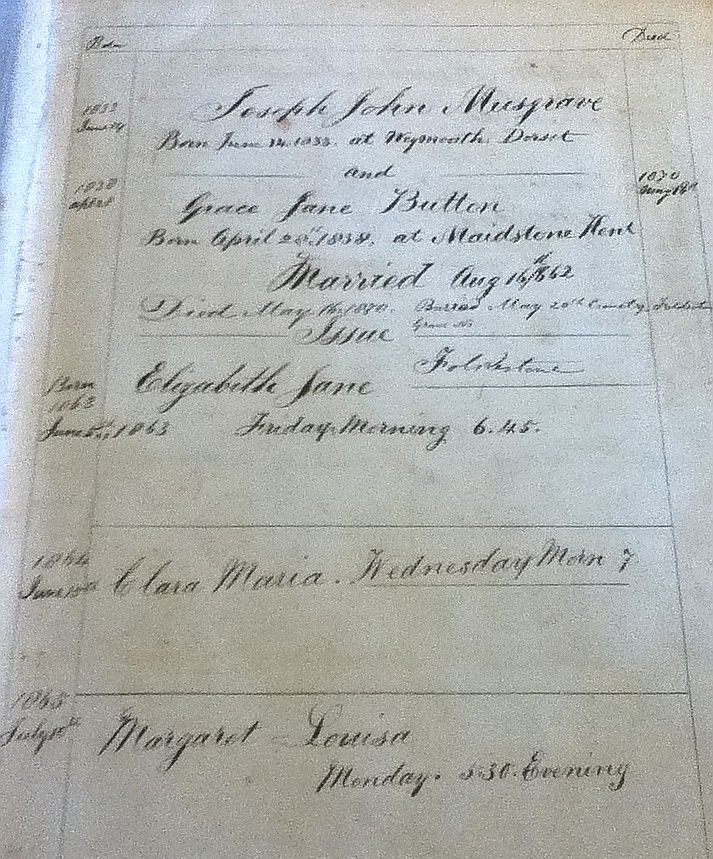 Born Died
1833
June 14
Joseph John Musgrave
Born June 14. 1833. at Weymouth. Dorset
and
1838
April
1870
May
Grace Jane Button
Born April 28th 1838. at Maidstone Kent
Married Aug 16th 1862
Died May 1870. Buried May 20th
Issue
Folkestone
Born
1863
Elizabeth Jane
June 5th 1863 Friday Morning 6.45.
1864
June 15th
Clara Maria. Wednesday Morn 7
1865
July 10th
Margaret Louisa
Monday. 5.30. Evening